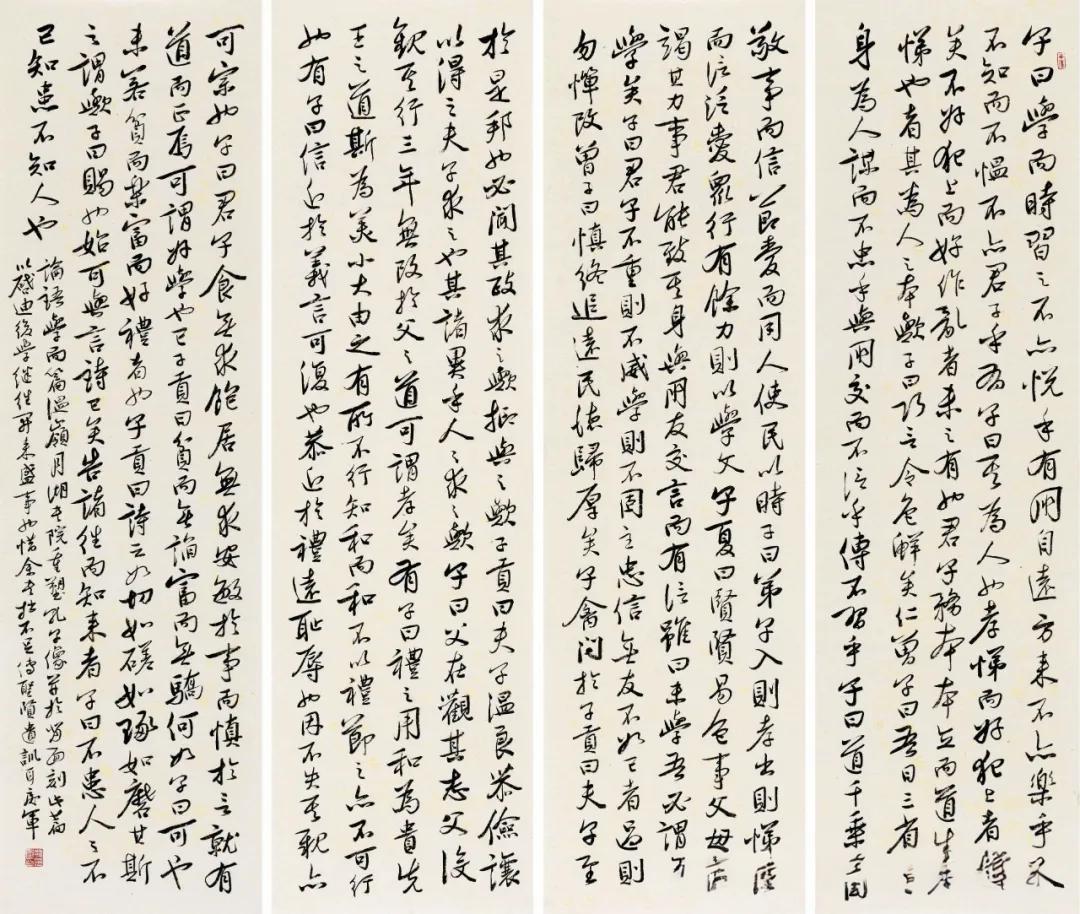 子曰學而時習之不亦悅乎有朋自遠方来不亦樂乎人
不知而不慍不亦君子乎有子曰其為人也孝悌而好犯上者鮮
矣不好犯上而好作亂者未之有也君子務本本立而道生孝
悌也者其為人之本歟子曰巧言令色鮮矣仁曾子曰吾日三省吾
身為人謀而不忠乎與朋交而不信乎傳不習乎子曰道千乘之國
敬事而信節愛而用人使民以時子曰弟子入則孝出則悌謹
而信泛愛眾行有餘力則以學文子夏曰賢賢易色事父母能
竭其力事君能致其身與朋友交言而有信雖曰未學吾必謂之
學矣子曰君子不重則不威學則不固主忠信無友不如己者過則
勿憚改曾子曰慎終追遠民德歸厚矣子禽问於子貢曰夫子至
於是邦也必聞其政求之歟抑與之歟子貢曰夫子溫良恭儉讓
以得之夫子求之也其諸異乎人之求之歟子曰父在觀其志父沒
觀其行三年無改於父之道可謂孝矣有子曰禮之用和為貴先
王之道斯為美小大由之有所不行知和而和不以禮節之亦不可行
也有子曰信近於義言可復也恭近於禮遠恥辱也因不失其親亦
可宗也子曰君子食無求飽居無求安敏於事而慎於言就有
道而正焉可謂好學也已子貢曰貧而無諂富而無驕何如子曰可也
未若貧而樂富而好禮者也子貢曰詩云如切如磋如琢如磨其斯
之謂歟子曰賜也始可與言詩已矣告諸往而知来者子曰不患人之不
己知患不知人也
論語學而篇溫嶺月湖書院重塑孔子像并於背面刻此篇
以啟迪後學继往開来盛事也惜余書拙不足傳聖賢遺訓